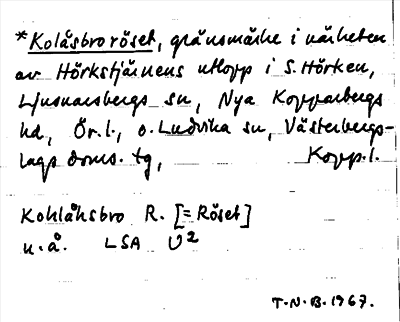 *Kolåsbroröset, gränsmärke i närheten
av Hörkstjärnens utlopp i S. Hörken,
Ljusnarsbergs sn, Nya Kopparbergs
hd, Ör. l., o. Ludvika sn, Västerbergs-
lags doms. tg, Kopp. l.
Kohlåhsbro R. [= Röset]
u.å. LSA U2
T.N.B. 1967.